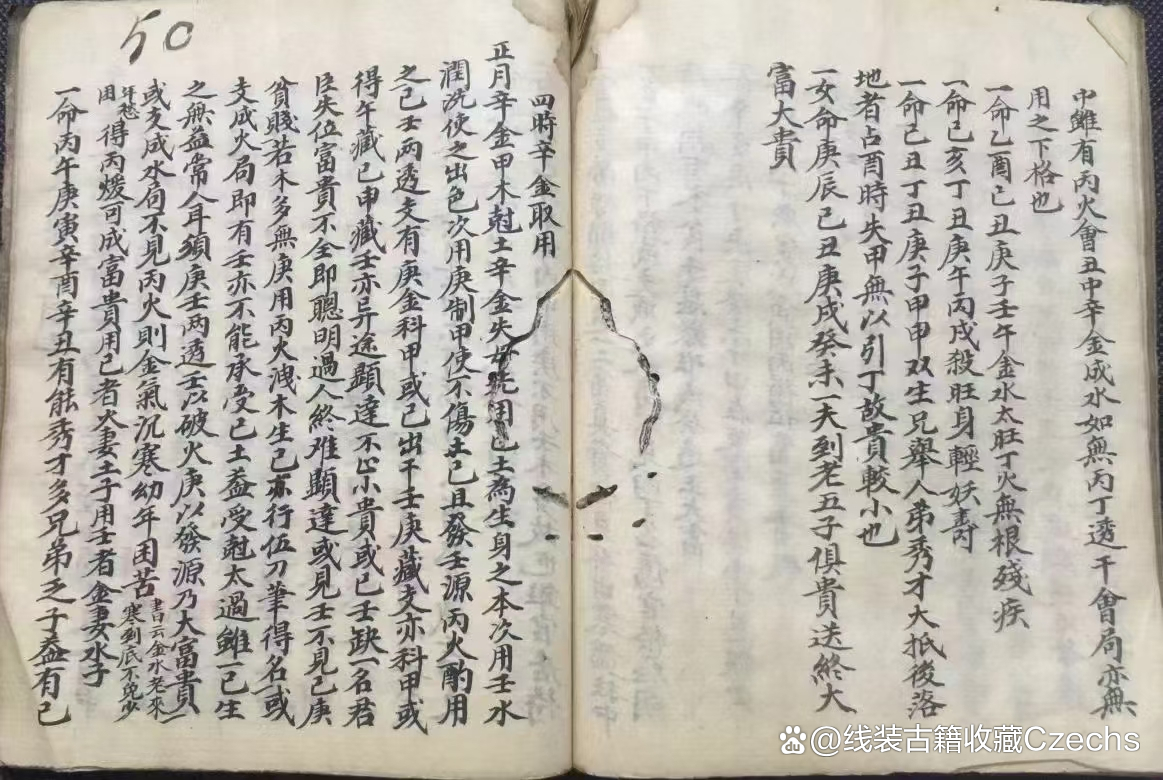 中雖有丙火會丑中辛金成水如無丙丁透干會局亦無
用之下格也
一命乙酉己丑庚子壬午金水太旺丁火無根殘疾
一命己亥丁丑庚午丙戌殺旺身輕妖壽
一命己丑丁丑庚子甲申双生兄舉人弟秀才大抵後落
地者占酉時失甲無以引丁故貴較小也
一女命庚辰己丑庚戌癸未一夫到老五子俱貴送終大
富大貴
50
四時辛金取用
正月辛金甲木尅土辛金失用己土為生身之本次用壬水
潤洗使之出色次用庚制甲使不傷土己且發壬源丙火酌用
之己壬兩透支有庚金科甲或己出干壬庚藏支亦科甲或
得午藏己申藏壬亦异途顯達不止小貴或己壬缺一名君
臣失位富貴不全即聰明過人終难顯達或見壬不見己庚
貧賤若木多無庚用丙火洩木生己亦行伍刀筆得名或
支成火局即有壬亦不能承受己土益受尅太過雖一己生
之無益常人耳須庚壬兩透壬以破火庚以發源乃大富貴一
或支成水局不見丙火則金氣沉寒幼年困苦
書曰云金水老來
寒到底不免少
年愁
得丙煖可成富貴用己者火妻土子用壬者金妻水子
一命丙午庚寅辛酉辛丑有能秀才多兄弟乏子益有己
@线装古籍收藏Czechs